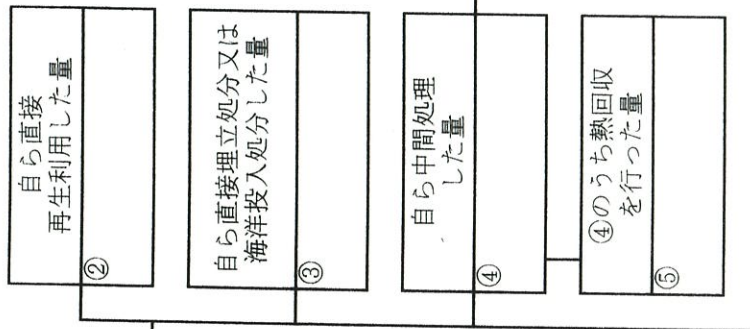 自ら直接
再生利用した量
②
自ら直接埋立処分又は
海洋投入処分した量
③
自ら中間処理
した量
④
④のうち熱回収
を行った量
⑤